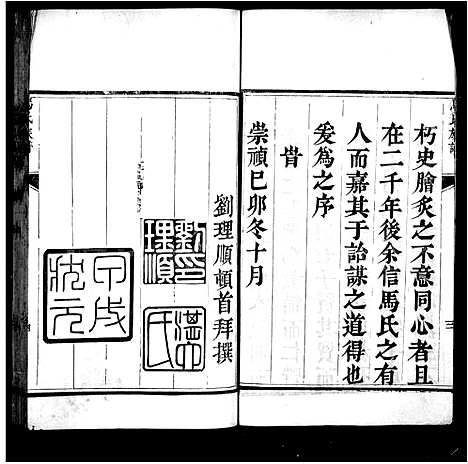 朽史膾炙之不意同心者且
在二千年後余信馬氏之有
人而嘉其于詒謀之道得也
爰為之序
旹
崇禎己卯冬十月
劉理順頓首拜撰
劉理順印
湛六氏
甲戌狀元